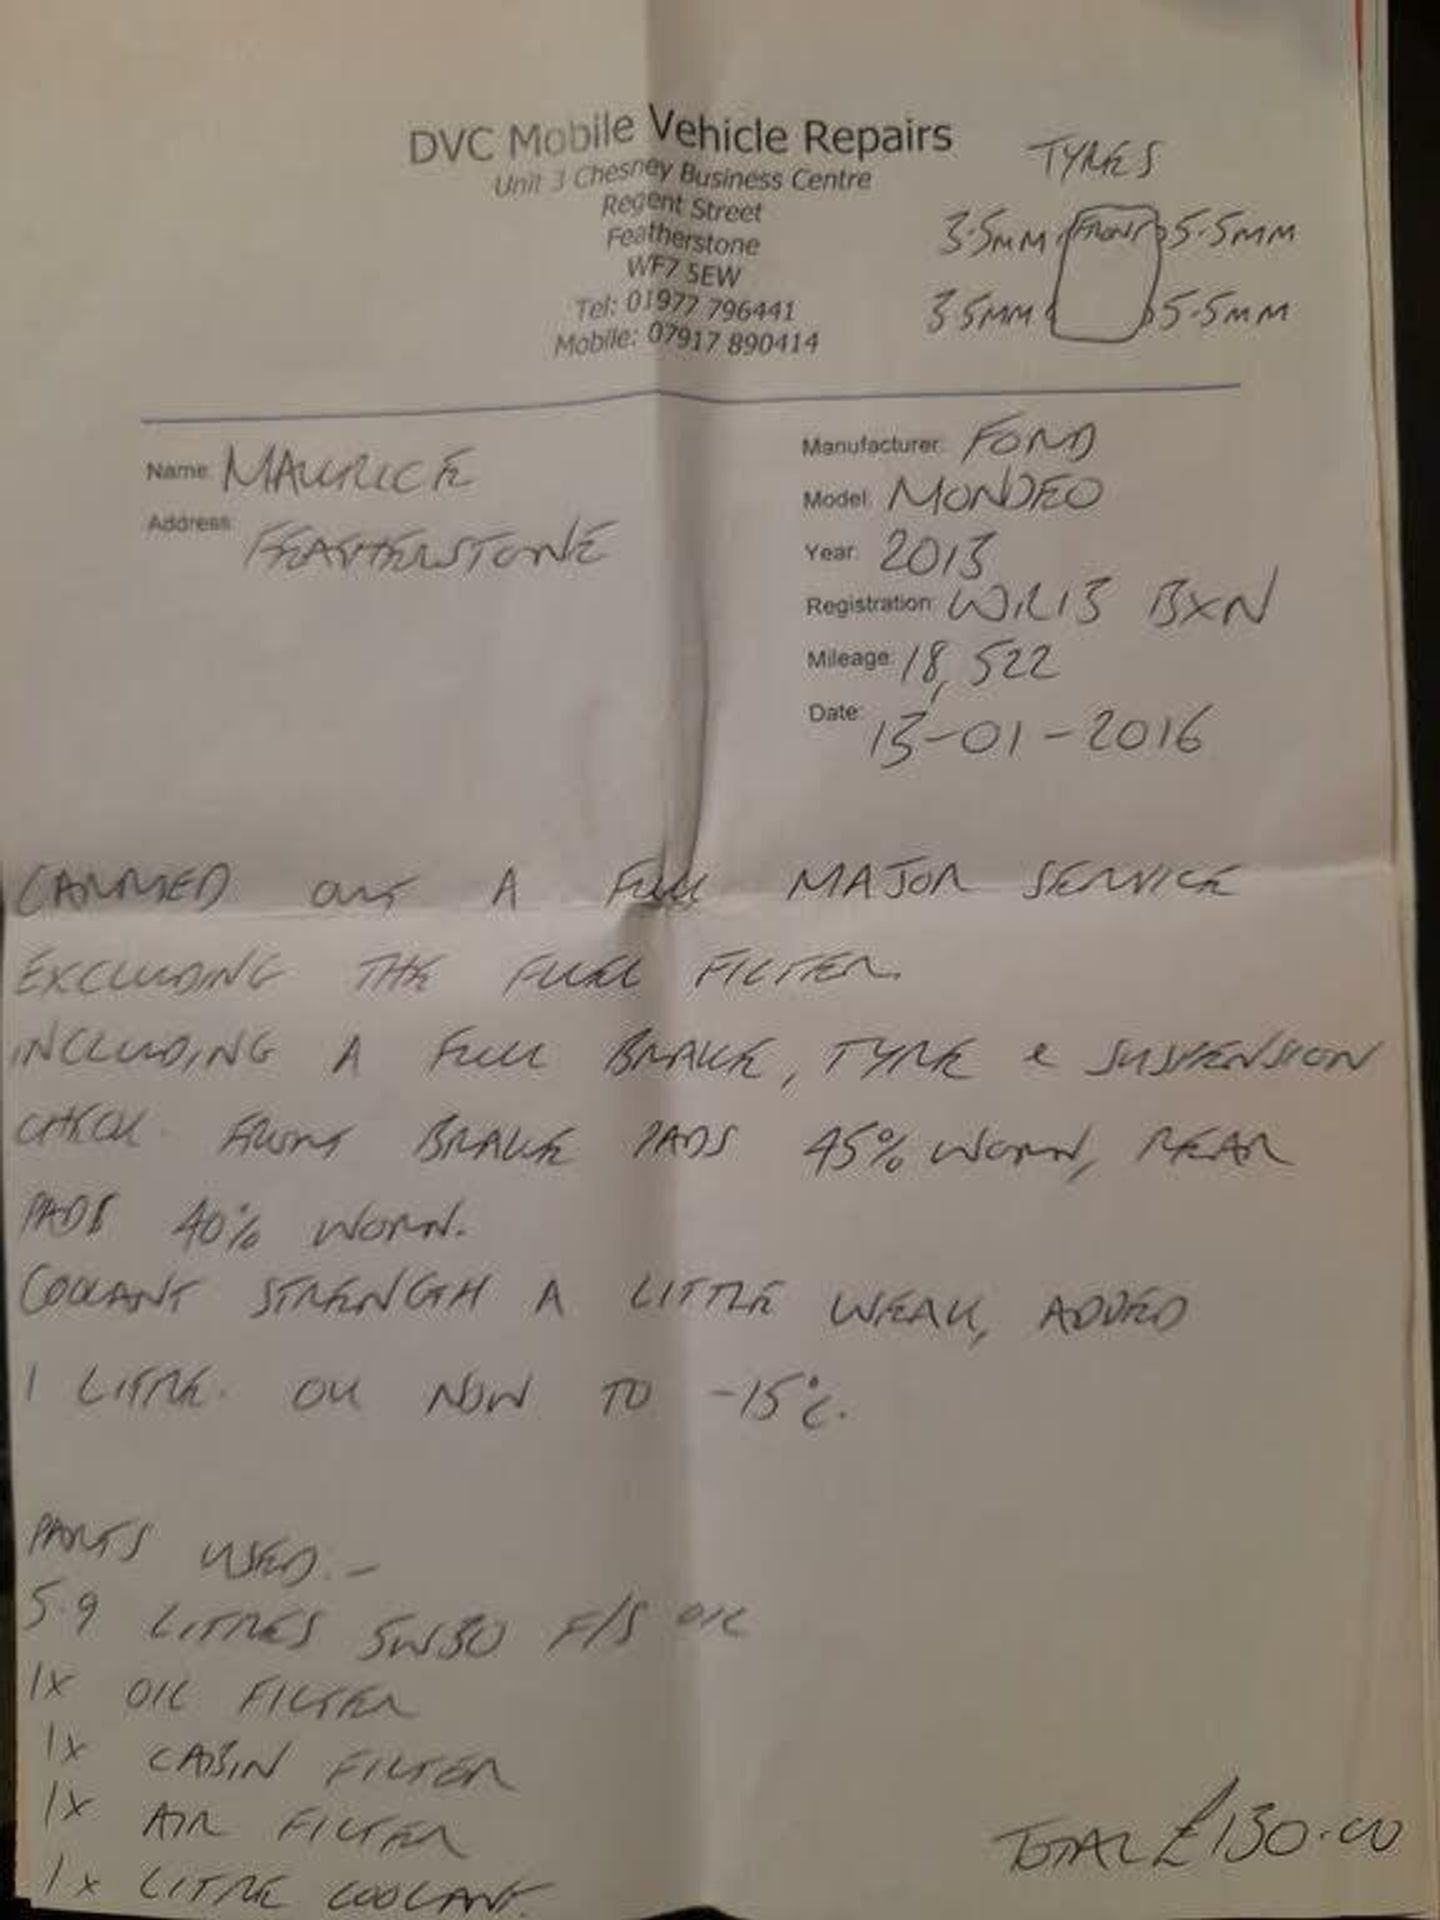 DVC Mobile Vehicle Repairs
Unit 3 Chesney Business Centre
Regent Street
Featherstone
WF7 5EW
Tel: 01977 796441
Mobile: 07917 890414
TYRES
3.5MM FRONT 5.5MM
3.5MM 5.5MM
Name: MAURICE
Address: FEATHERSTONE
Manufacturer: FORD
Model: MONDEO
Year: 2013
Registration: WR13 BXN
Mileage: 18,522
Date: 13-01-2016
CARRIED OUT A FULL MAJOR SERVICE
EXCLUDING THE FUEL FILTER.
INCLUDING A FULL BRAKE, TYRE & SUSPENSION
CHECK. FRONT BRAKE PADS 45% WORN, REAR
PADS 40% WORN.
COOLANT STRENGTH A LITTLE WEAK, ADDED
1 LITRE. OK NOW TO -15°C.
PARTS USED:-
5.9 LITRES 5W30 F/S OIL
1x OIL FILTER
1x CABIN FILTER
1x AIR FILTER
1x LITRE COOLANT.
TOTAL £130.00